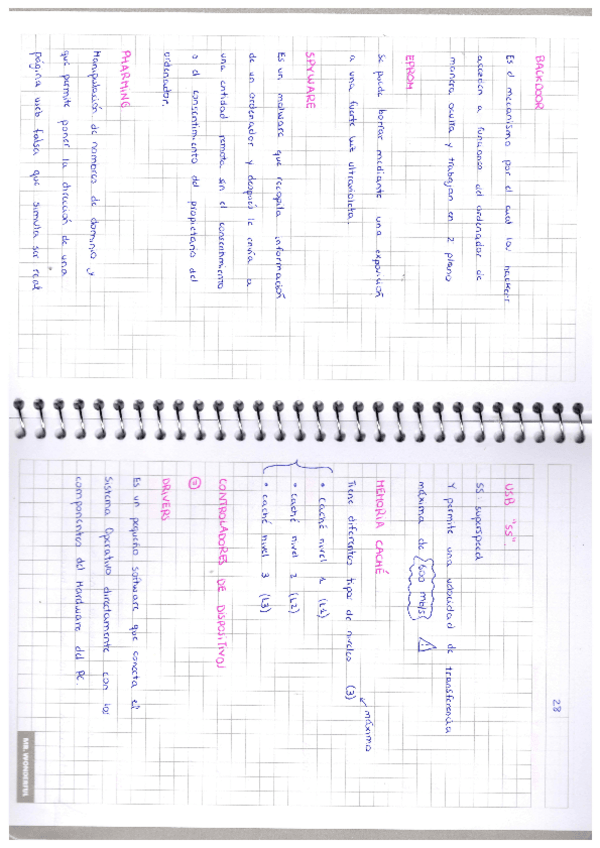 BACKDOOR
Es el mecanismo por el cual los hackers
acceden a funciones del ordenador de
manera oculta y trabajan en 2 plano
EEPROM
Se puede borrar mediante una exposición
a una fuente luz ultravioleta.
SPYWARE
Es un malware que recopila información
de un ordenador y después le envía a
una entidad remota sin el conocimiento
o el consentimiento del propietario del
ordenador.
PHARMING
Manipulación de nombres de dominio y
que permite poner la dirección de una
página web falsa que simula ser real
28
USB "SS".
SS: superspeed
Y permite una velocidad de transferencia
máxima de {600 mb/s} ⚠
MEMORIA CACHÉ
Tiene diferentes tipos de niveles (3)
máximo
• caché nivel 1 (L1)
• caché nivel 2 (L2)
• caché nivel 3 (L3)
CONTROLADORES DE DISPOSITIVOS
DRIVERS
Es un pequeño software que conecta el
Sistema Operativo directamente con los
componentes del Hardware del PC.
MR. WONDERFUL